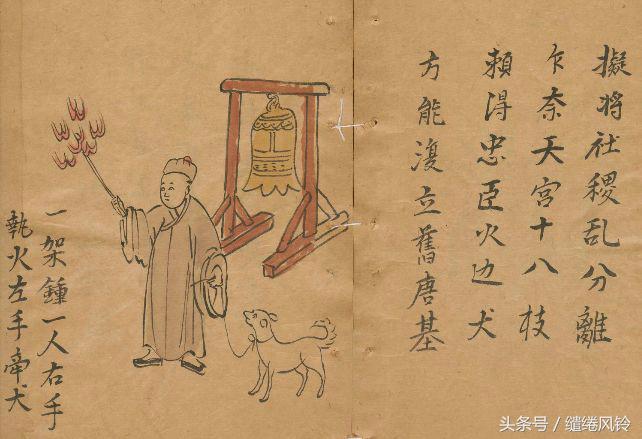 擬將社稷乱分離
乍奈天宮十八枝
頼得忠臣火边犬
方能復立舊唐基
一架鍾一人右手
執火左手牽犬
头条号/缱绻风铃